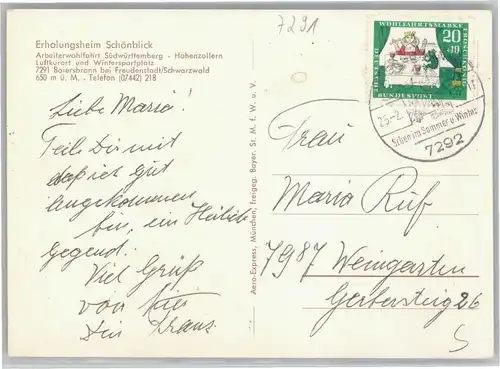 7291
Erholungsheim Schönblick
Arbeiterwohlfahrt Südwürttemberg - Hohenzollern
Luftkurort und Wintersportplatz
7291 Baiersbronn bei Freudenstadt/Schwarzwald
650 m ü. M. - Telefon (07442) 218
Liebe Maria!
Teile Dir mit
daß ich gut
angekommen
bin, ein
Gegend.
Viel Grüß
von
Dein Franz.
Aero-Express, München, Freigeg. Bayer. St. M. f. W. u. V.
WOHLFAHRTSMARKE
20
+10
DEUTSCHE
BUNDESPOST
25.-2.
Schön im Sommer u. Winter
7292
Frau
Maria Ruf
7987 Weingarten
Gerbersteig 26